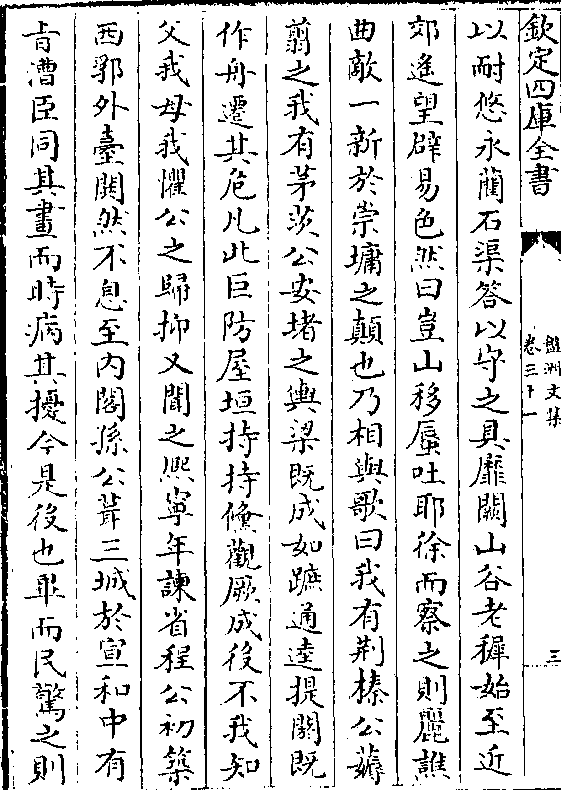 欽定四庫全書
盤洲文集
卷三十一
三
以耐悠永藺石渠答以守之具靡闕山谷老穉始至近
郊逢望辟易色然曰豈山移蜃吐耶徐而察之則麗譙
曲敵一新於崇墉之顛也乃相與歌曰我有荆榛公薅
翦之我有茅茨公安堵之輿梁既成如蹠通逵提關既
作舟遷其危凡此巨防屋垣持持儵觀厥成後不我知
父我母我懼公之歸抑又聞之熙寧年諫省程公初築
西郛外臺闕然不息至内閣孫公葺三城於宣和中有
肯漕臣同其畫而時病其擾今是後也聚而民驚之則